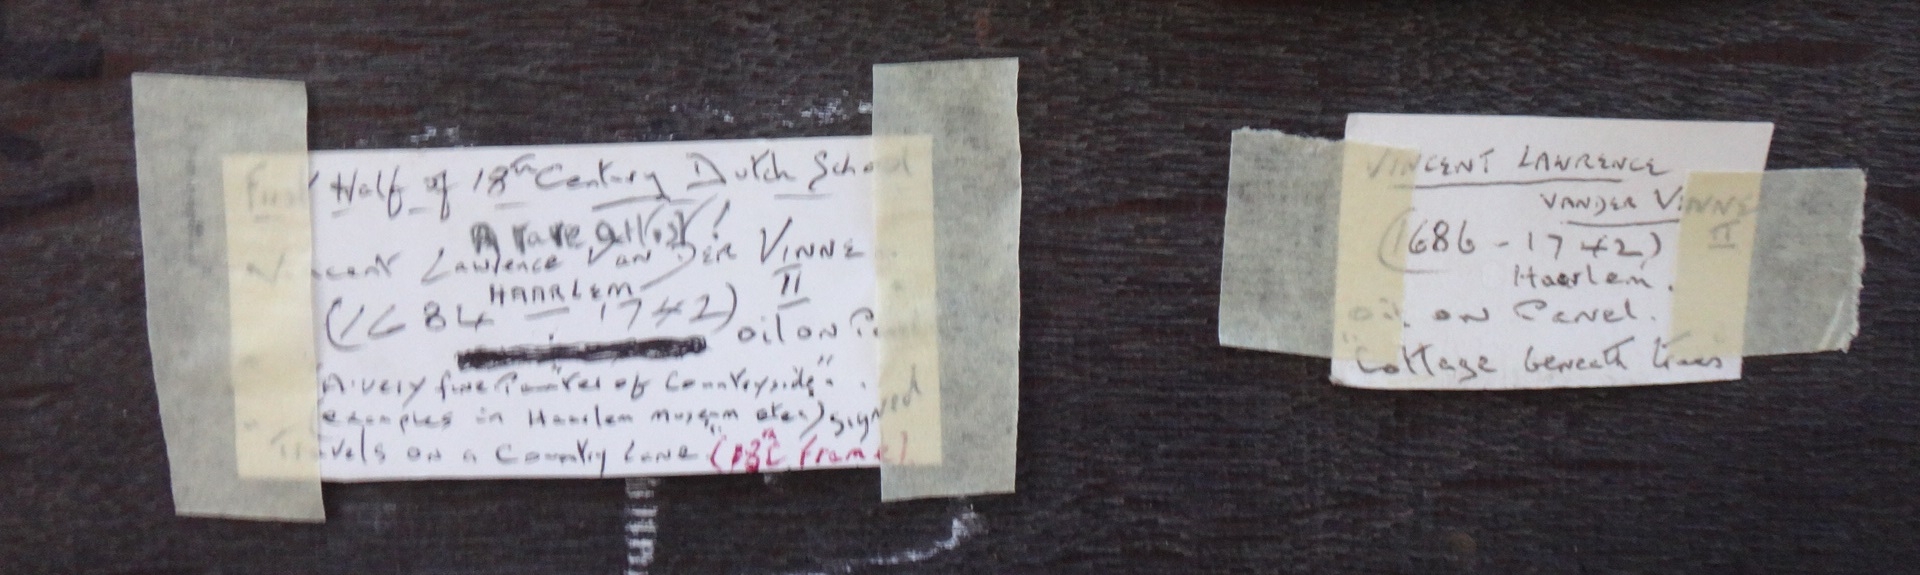 First Half of 18th Century Dutch School
A rare artist!
Vincent Lawrence Van Der Vinne
HAARLEM II
(1684 – 1742) oil on Panel
"A very fine Painter of Countryside".
(examples in Haarlem museum etc) signed
"Travels on a Country Lane" (18thC frame)
VINCENT LAWRENCE
VANDER VINNE
(1686 - 1742) II
Haarlem.
oil on Panel.
"Cottage beneath trees"